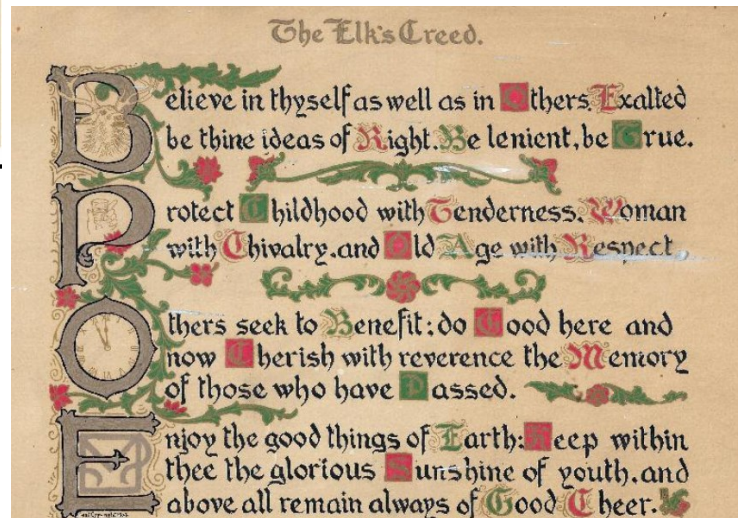 The Elk's Creed.
Believe in thyself as well as in Others. Exalted
be thine ideas of Right. Be lenient, be True.
Protect Childhood with Tenderness. Woman
with Chivalry. and Old Age with Respect
Others seek to Benefit: do Good here and
now Cherish with reverence the Memory
of those who have Passed.
Enjoy the good things of Earth: Keep within
thee the glorious Sunshine of youth. and
above all remain always of Good Cheer.